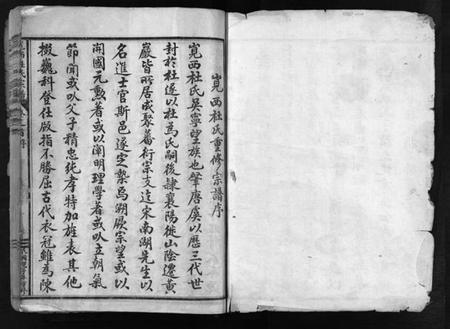 峴西杜氏重修宗譜序
峴西杜氏吳寧望族也肇唐虞以歷三代世
封於杜遂以杜為氏嗣後隸襄陽徙山陰遷黃
巖皆所居成聚蕃衍宗支迨宋南湖先生以
名進士官斯邑遂定繫焉溯厥宗望或以
開國元勳著或以闡明理學著或以立朝氣
節聞或以父子精忠純孝特加旌表其他
掇巍科登仕版指不勝屈古代衣冠雖為陳